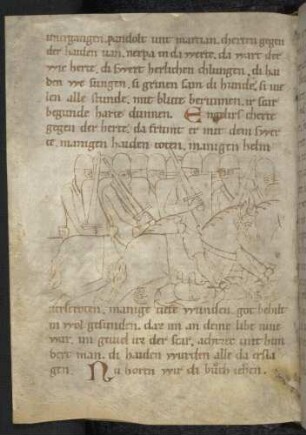 umrgangen. pandolt unt marian. cherten gegen
der haiden van. nerpa in da werte. da wart der
wic herte. di swert herlichen chlungen. di hai
den we sungen. si grinen sam di hunde. si vie
len alle stunde. mit blute berunnen. ir scar
begunde harte dunnen. Engelirs cherte
gegen der herte. da frumt er mit dem swer
te. manigen haiden toten. manigen helm
verscroten. manige tiefe wunden. got behilt
in wol gesunden. daz im an deme libe nine
war. im geviel ir der scar. achzec unt hun
dert man. di haiden wurden alle da ersla
gen. Nu horen wir di buch iehen.